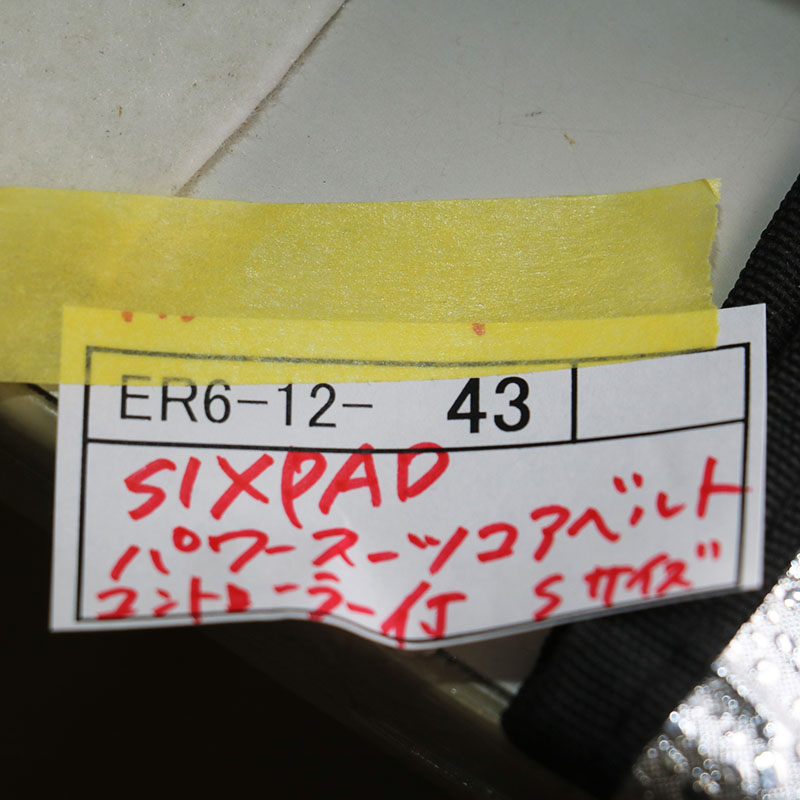 ER6-12- 43
SIXPAD
パワースーツコアベルト
コントローラー付 Sサイズ